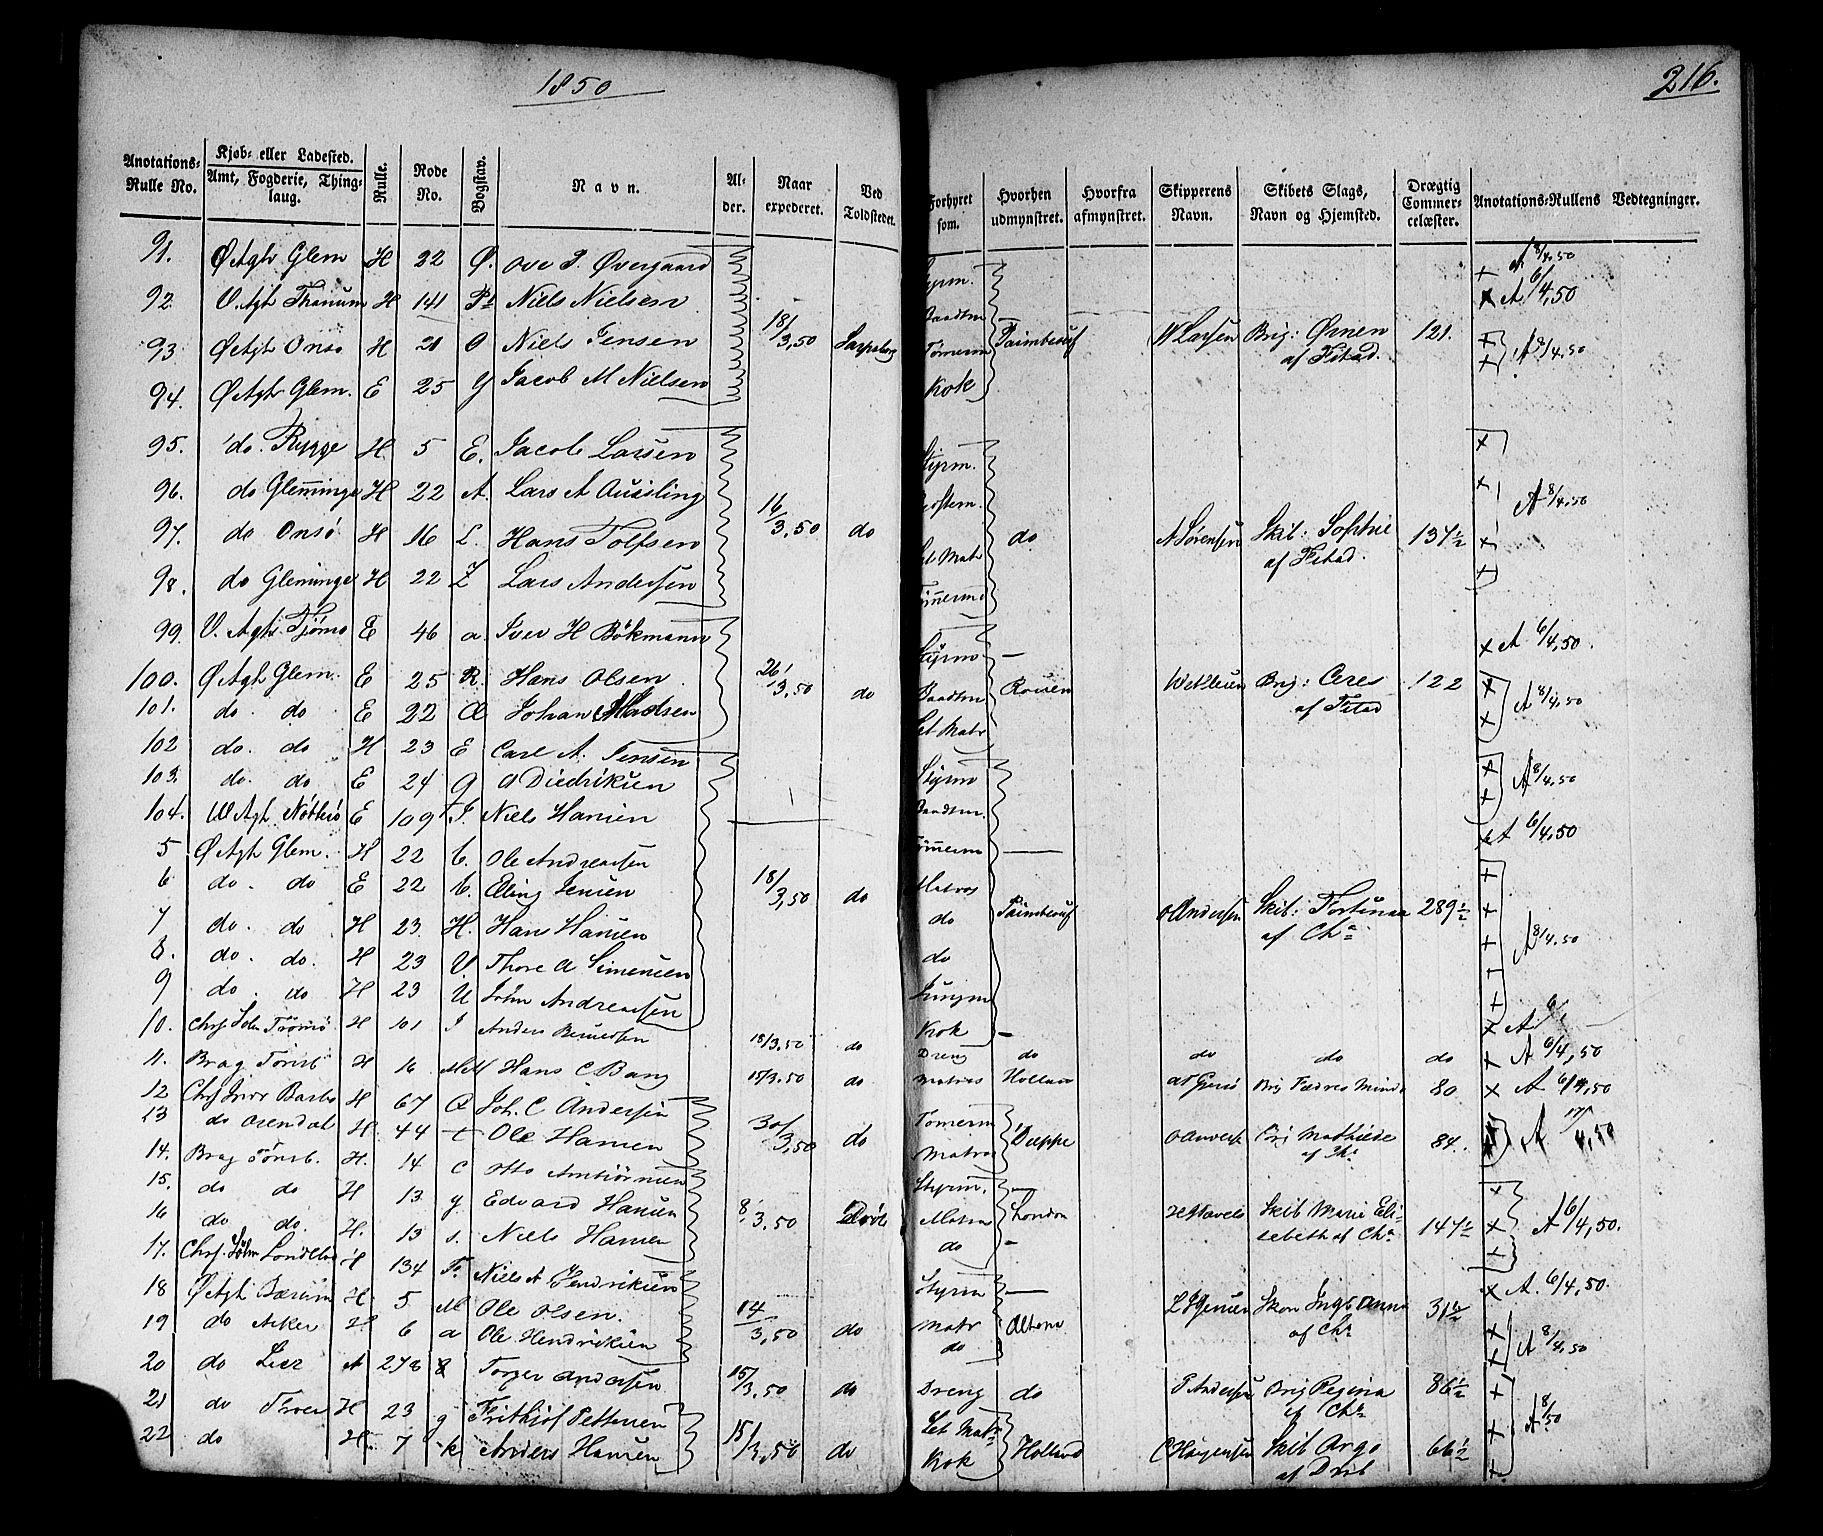 1850
216.
Anotations-Rulle No. Kjøb- eller Ladested. Amt, Fogderie, Thinglaug. Rulle. Rode No. Bogstav. Navn. Alder. Naar expederet. Ved Toldstedet. Forhyret som. Hvorhen udmynstret. Hvorfra afmynstret. Skipperens Navn. Skibets Slags, Navn og Hjemsted. Drægtig Commercelæster. Anotations-Rullens Vedtegninger.
91. Ø Agh Glem H 22 Ø. Ove P. Øvergaard Styrm. + A 8/4.50
92. V. Agh Thanum H 141 Niels Nielsen Baadtm — × A 6/4,50
93 Ø Agh Onsø H 21 O Niels Jensen 18/3,50 Sarpsborg Tømerm Paimbeuf W Larsen Brig: Ørnen af Fstad. 121. + A 8/4.50
94. Ø Agh Glem. E 25 Y Jacob M Nielsen Kok +
95. do. Rygge H. 5 E. Jacob Larsen Styrm. +
96. do Glemminge H 22 A. Lars A Aussling + A 8/4.50
97. do Onsø H 16 L. Hans Tolfsen 16/3,50 do Let Matr do A Sørensen Skib: Sophie af Fstad. 137½ +
98. do Gleminge H 22 Z Lars Andersen Tømerm +
99. V. Agh. Tjømø E 46 a. Iver H Bökmann Styrm — × A 6/4,50.
100. Ø Agh Glem. E 25 R. Hans Olsen 26/3,50 do Baadtm Rouen Brig: Ceres af Fstad 122 × A 8/4.50
101. do. do E 22 Œ Johan Madsen Let Matr +
102 do. do H 23 E Carl A. Jensen Styrm × A 8/4.50
103. do. do E 24 g A Diedriksen Baadtm. +
104. W Agh Nötterö E 109 J. Niels Hansen Tømerm — × A 6/4,50
5 Ø Agh Glem. H 22 C. Ole Andreassen Matros +
6 do. do E 22 C. Elling Jensen 18/3,50 do do Paimbeuf O Andersen Skib: Fortuna af Cha 289½ +
7 do. do H 23 H. Hans Hansen do + A 8/4.50
8. do. do. H 23 V. Thore A Simensen Jungm +
9 do. do H 23 U. John Andreassen Kok — +
10. Chrs. Tromö H 101 J Anders Berntsen 18/3.50 do Dreng do do do do × A 6/
11. Brag Tönsb H 16 Hans C Bang 15/3.50 do Matros Holland Brig Fædres Minde 80 + A 6/4,50
12 Chrs H 67 Joh. C Andersen Tömerm × A 6/4,50
13 do Arendal H. 44 t Ole Hansen 30/3,50 do Matros Dieppe Brig Mathilde af Cha 84. A 17/4,50
14. Brag Tönsb. H. 14 C Otto Styrm. — ×
15. do do H 13 g Edvard Hansen 8/3.50 Matros London Skib Marie Elisebeth af Cha 147½ × A 6/4,50.
16 do do. H. 13 s. Niels Hansen do — +
17. Chrs. H 134 To. Niels A Hendriksen Styrm — × A. 6/4,50.
18 Ø Agh Bærum H. 5 M Ole Olsen. 14/3,50 do Matr Altona Skon af Cha 31½ ×
19 do Aker H 6 a Ole Hendriksen do × A 8/4.50
20 do Lier A 278 Torger Andersen 15/3.50 do Dreng do P Andersen Brig Regina af Cha 86½ +
21 do H 23 g Frithjof Pettersen Let Matr + A 8/50
22 do H. 7 k Anders Hansen 15/3,50 do Kok Holland Skib Argo af Drb 66½ +